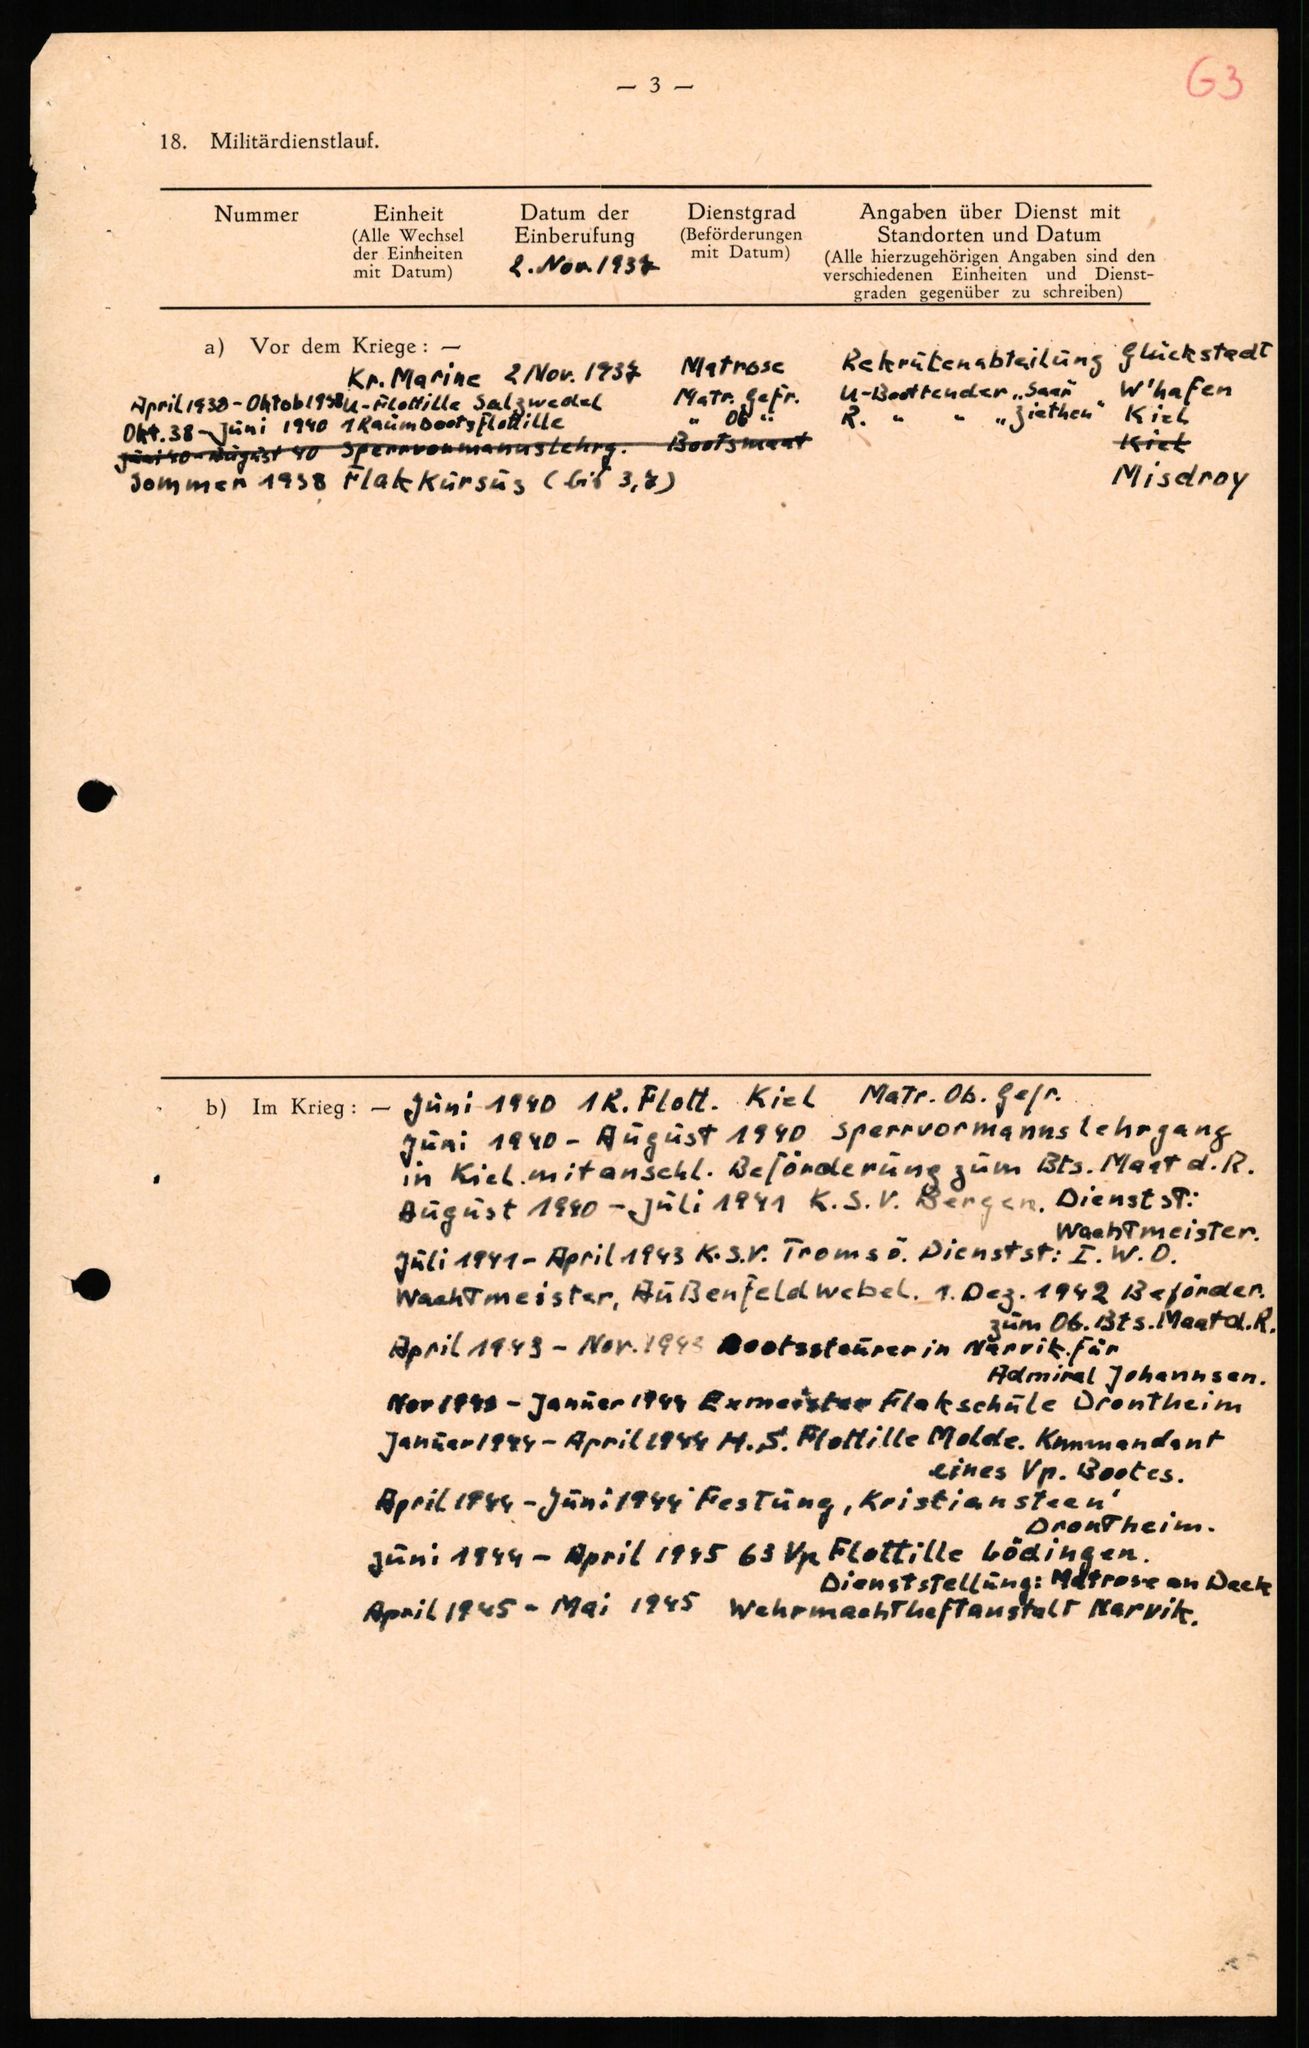 — 3 —
G3
18. Militärdienstlauf.
Nummer
Einheit
(Alle Wechsel
der Einheiten
mit Datum)
Datum der
Einberufung
2. Nov. 1937
Dienstgrad
(Beförderungen
mit Datum)
Angaben über Dienst mit
Standorten und Datum
(Alle hierzugehörigen Angaben sind den
verschiedenen Einheiten und Dienst-
graden gegenüber zu schreiben)
a) Vor dem Kriege: —
Kr. Marine 2 Nov. 1937 Matrose Rekrutenabteilung Glückstadt
April 1938 - Oktob 1938 U-Flottille Salzwedel Matr. Gefr. U-Boottender „Saar" W'hafen
Okt. 38 - Juni 1940 1 Raumbootsflottille " Ob " R. " " „Ziethen" Kiel
Juni 40 - August 40 Sperrvormannslehrg. Bootsmaat Kiel
Sommer 1938 Flak Kursus (bis 3,7) Misdroy
b) Im Krieg: — Juni 1940 1 R. Flott. Kiel Matr. Ob. Gefr.
Juni 1940 - August 1940 Sperrvormannslehrgang
in Kiel. mit anschl. Beförderung zum Bts. Maat d. R.
August 1940 - Juli 1941 K.S.V. Bergen. Dienstst:
Wachtmeister.
Juli 1941 - April 1943 K.S.V. Tromsö. Dienstst: I. W. O.
Wachtmeister, Außenfeldwebel. 1. Dez. 1942 Beförder.
zum Ob. Bts. Maat d. R.
April 1943 - Nov. 1943 Bootssteurer in Narvik für
Admiral Johannsen.
Nov 1943 - Januar 1944 Exmeister Flakschule Drontheim
Januar 1944 - April 1944 H.S. Flottille Molde. Kommandant
eines Vp. Bootes.
April 1944 - Juni 1944 Festung 'Kristiansteen'
Drontheim.
Juni 1944 - April 1945 63 Vp Flottille Lödingen.
Dienststellung: Matrose an Deck
April 1945 - Mai 1945 Wehrmachtheftanstalt Narvik.